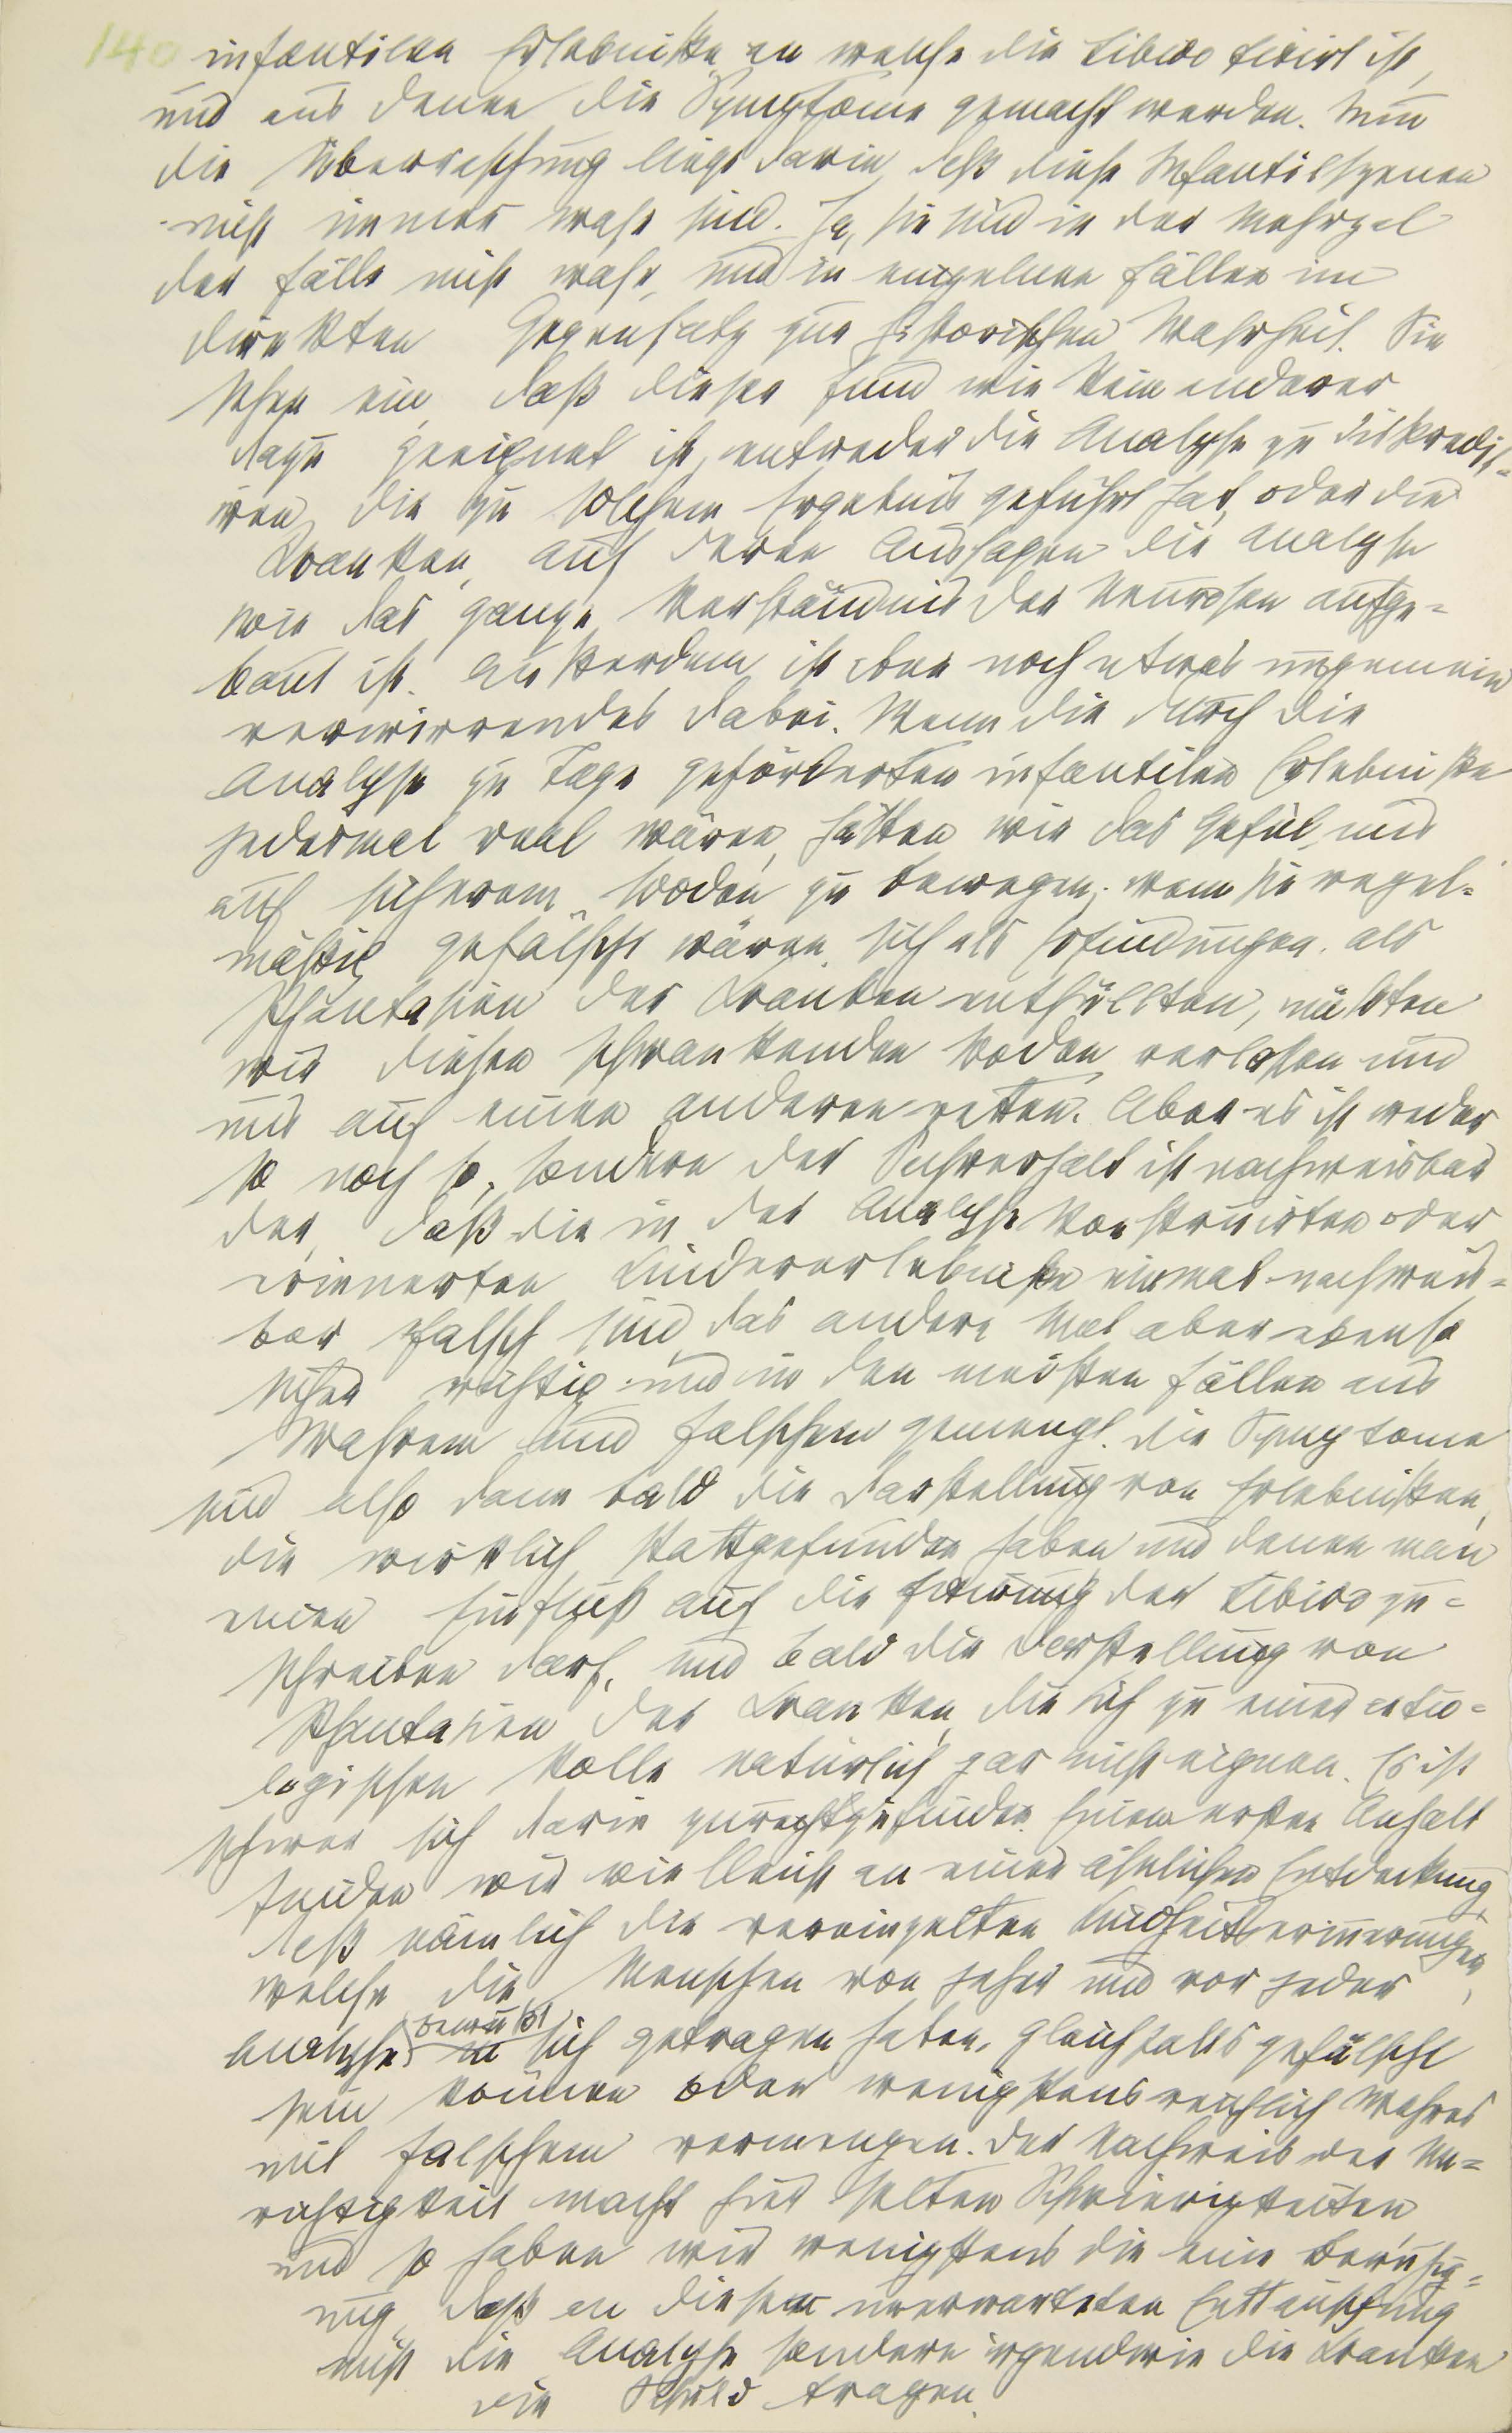 140 infantilen Erlebnisse an welche die Libido fixirt ist,
und aus denen die Symptome gemacht werden. Nun
die Überraschung liegt darin, daß diese Infantilszenen
nicht immer wahr sind. Ja, sie sind in der Mehrzal
der Fälle nicht wahr, und in einzelnen Fällen im
direkten Gegensatz zur historischen Wahrheit. Sie
sehen ein, daß dieser Fund wie kein anderer
dazu geeignet ist, entweder die Analyse zu diskredit-
iren, die zu solchem Ergebnis geführt hat, oder die
Kranken, auf deren Aussagen die Analyse
wie das ganze Verständnis der Neurosen aufge-
baut ist. Außerdem ist aber noch etwas ungemein
verwirrendes dabei. Wenn die durch die
Analyse zu Tage geförderten infantilen Erlebnisse
jedesmal real wären, hätten wir das Gefül, uns
auf sicherem Boden zu bewegen; wenn sie regel-
mäßig gefälscht wären, sich als Erfindungen, als
Phantasien der Kranken enthüllten, müßten
wir diesen schwankenden Boden verlassen und
uns auf einen anderen retten. Aber es ist weder
so noch so, sondern der Sachverhalt ist nachweisbar
der, daß die in der Analyse konstruirten oder
erinnerten Kindererlebnisse einmal nachweis-
bar falsch sind, das andere Mal aber ebenso
sicher richtig und in den meisten Fällen aus
Wahrem und Falschem gemengt. Die Symptome
sind also dann bald die Darstellung von Erlebnissen,
die wirklich stattgefunden haben und denen man
einen Einfluß auf die Fixirung der Libido zu-
schreiben darf, und bald die Darstellung von
Phantasien der Kranken, die sich zu einer ätio-
logischen Rolle natürlich gar nicht eignen. Es ist
schwer sich darin zurechtzufinden. Einen ersten Anhalt
finden wir vielleicht an einer ähnlichen Entdeckung,
daß nämlich die vereinzelten Kindheitserinnerungen,
welche die Menschen von jeher und vor jeder
Analyse bewußt in sich getragen haben, gleichfalls gefälscht
sein können oder wenigstens reichlich Wahres
mit Falschem vermengen. Der Nachweis der Un-
richtigkeit macht hier selten Schwierigkeiten
und so haben wir wenigstens die eine Beruhig-
ung, daß an dieser unerwarteten Enttäuschung
nicht die Analyse sondern irgendwie die Kranken
die Schuld tragen.